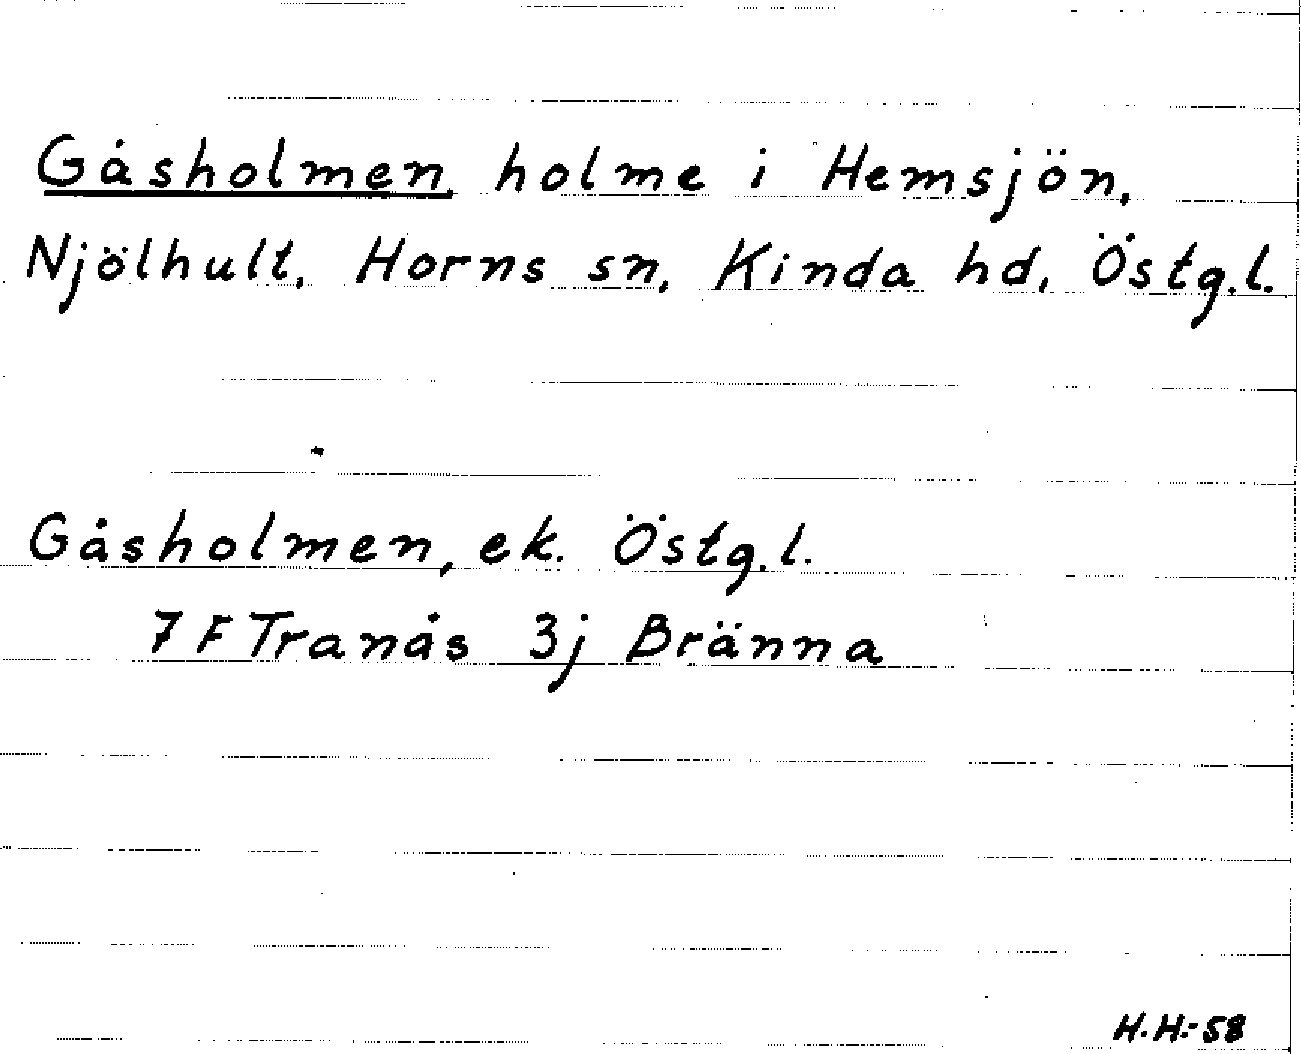 Gåsholmen, holme i Hemsjön,
Njölhult, Horns sn, Kinda hd, Östg.l.
Gåsholmen, ek. Östg.l.
7 F Tranås 3j Bränna
H.H.-58